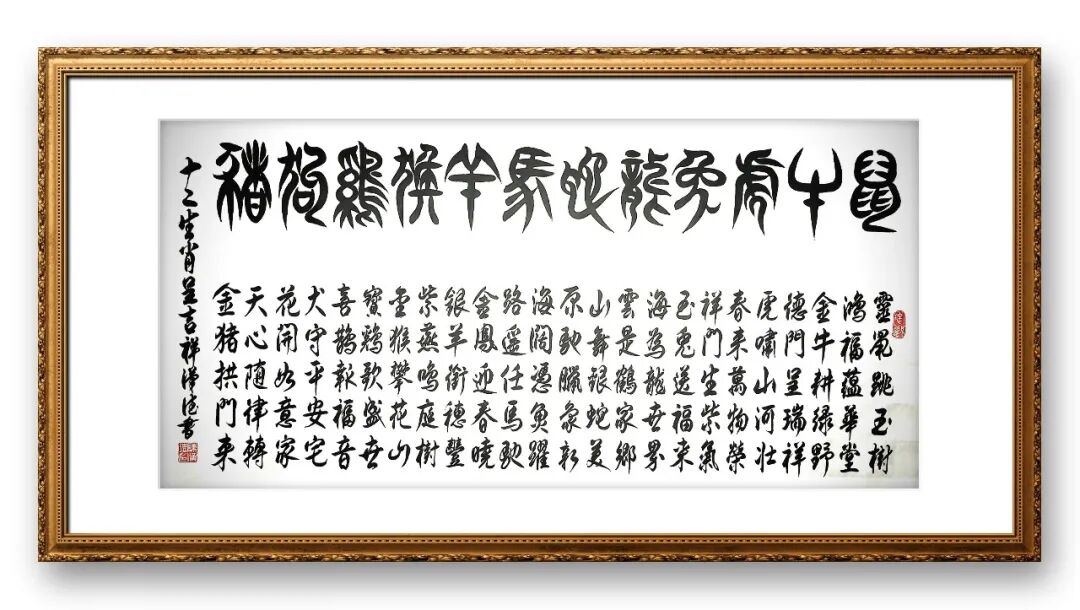 鼠牛虎兔龍蛇馬羊猴鷄狗猪
靈鼠跳玉樹
鴻福蘊華堂
金牛耕緑野
德門呈瑞祥
虎嘯山河壯
春来萬物榮
祥門生紫氣
玉兔送福来
海為龍世界
雲是鶴家鄉
山舞銀蛇美
原馳臘象新
海闊憑魚躍
路遥任馬馳
金鳳迎春曉
銀羊銜穗豐
紫燕鳴庭樹
金猴攀花山
寶鷄歌盛世
喜鵲報福音
犬守平安宅
花開如意家
天心随律轉
金猪拱門来
十二生肖呈吉祥 書